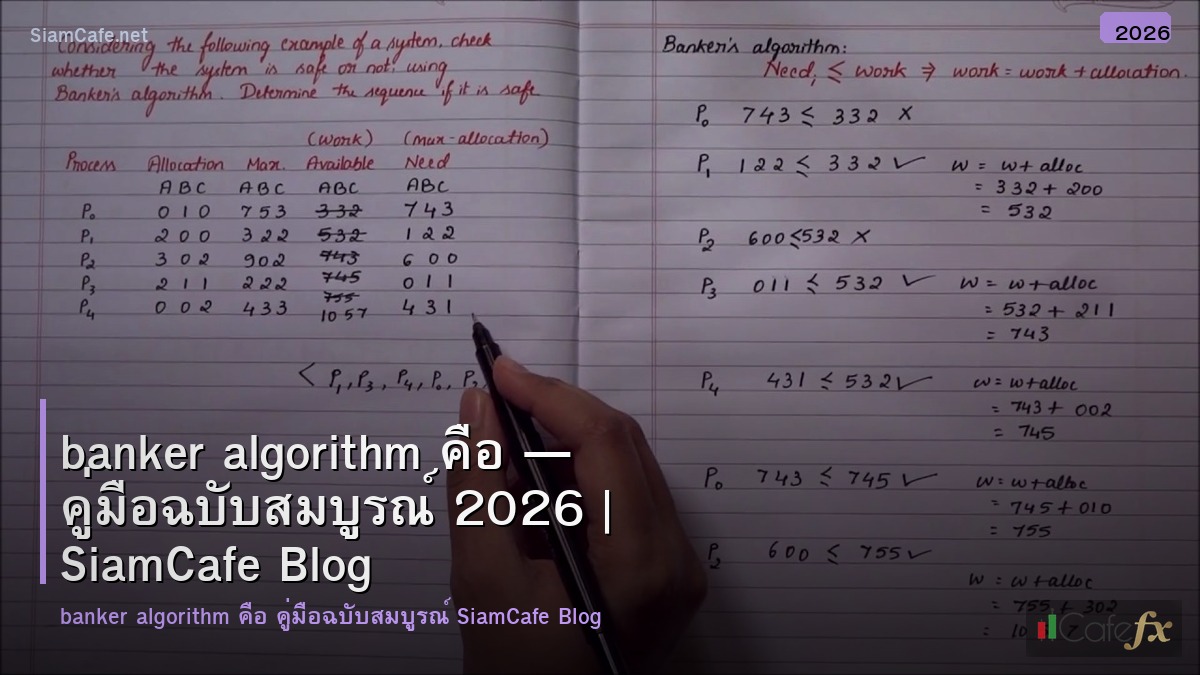 SiamCafe.net
2026
Considering the following example of a system, check
whether the system is safe or not, using
Banker's algorithm. Determine the sequence if it is safe
(work) (max-allocation)
Process Allocation Max. Available Need
A B C A B C A B C A B C
P0 0 1 0 7 5 3 3 3 2 7 4 3
P1 2 0 0 3 2 2 5 3 2 1 2 2
P2 3 0 2 9 0 2 7 4 3 6 0 0
P3 2 1 1 2 2 2 7 4 5 0 1 1
P4 0 0 2 4 3 3 7 5 5 4 3 1
10 5 7
< P1, P3, P4, P0, P2
Banker's algorithm:
Needi ≤ work ⇒ work = work + allocation.
P0 7 4 3 ≤ 3 3 2 X
P1 1 2 2 ≤ 3 3 2 ✓ w = w + alloc
= 3 3 2 + 2 0 0
= 5 3 2
P2 6 0 0 ≤ 5 3 2 X
P3 0 1 1 ≤ 5 3 2 ✓ w = w + alloc
= 5 3 2 + 2 1 1
= 7 4 3
P4 4 3 1 ≤ 5 3 2 ✓ w = w + alloc
= 7 4 3 + 0 0 2
= 7 4 5
P0 7 4 3 ≤ 7 4 5 ✓ w = w + alloc
= 7 4 5 + 0 1 0
= 7 5 5
P2 6 0 0 ≤ 7 5 5 ✓
w = w + alloc
= 7 5 5 + 3 0 2
= 10 7
banker algorithm คือ —
คู่มือฉบับสมบูรณ์ 2026 |
SiamCafe Blog
banker algorithm คือ คู่มือฉบับสมบูรณ์ SiamCafe Blog
iCafefx